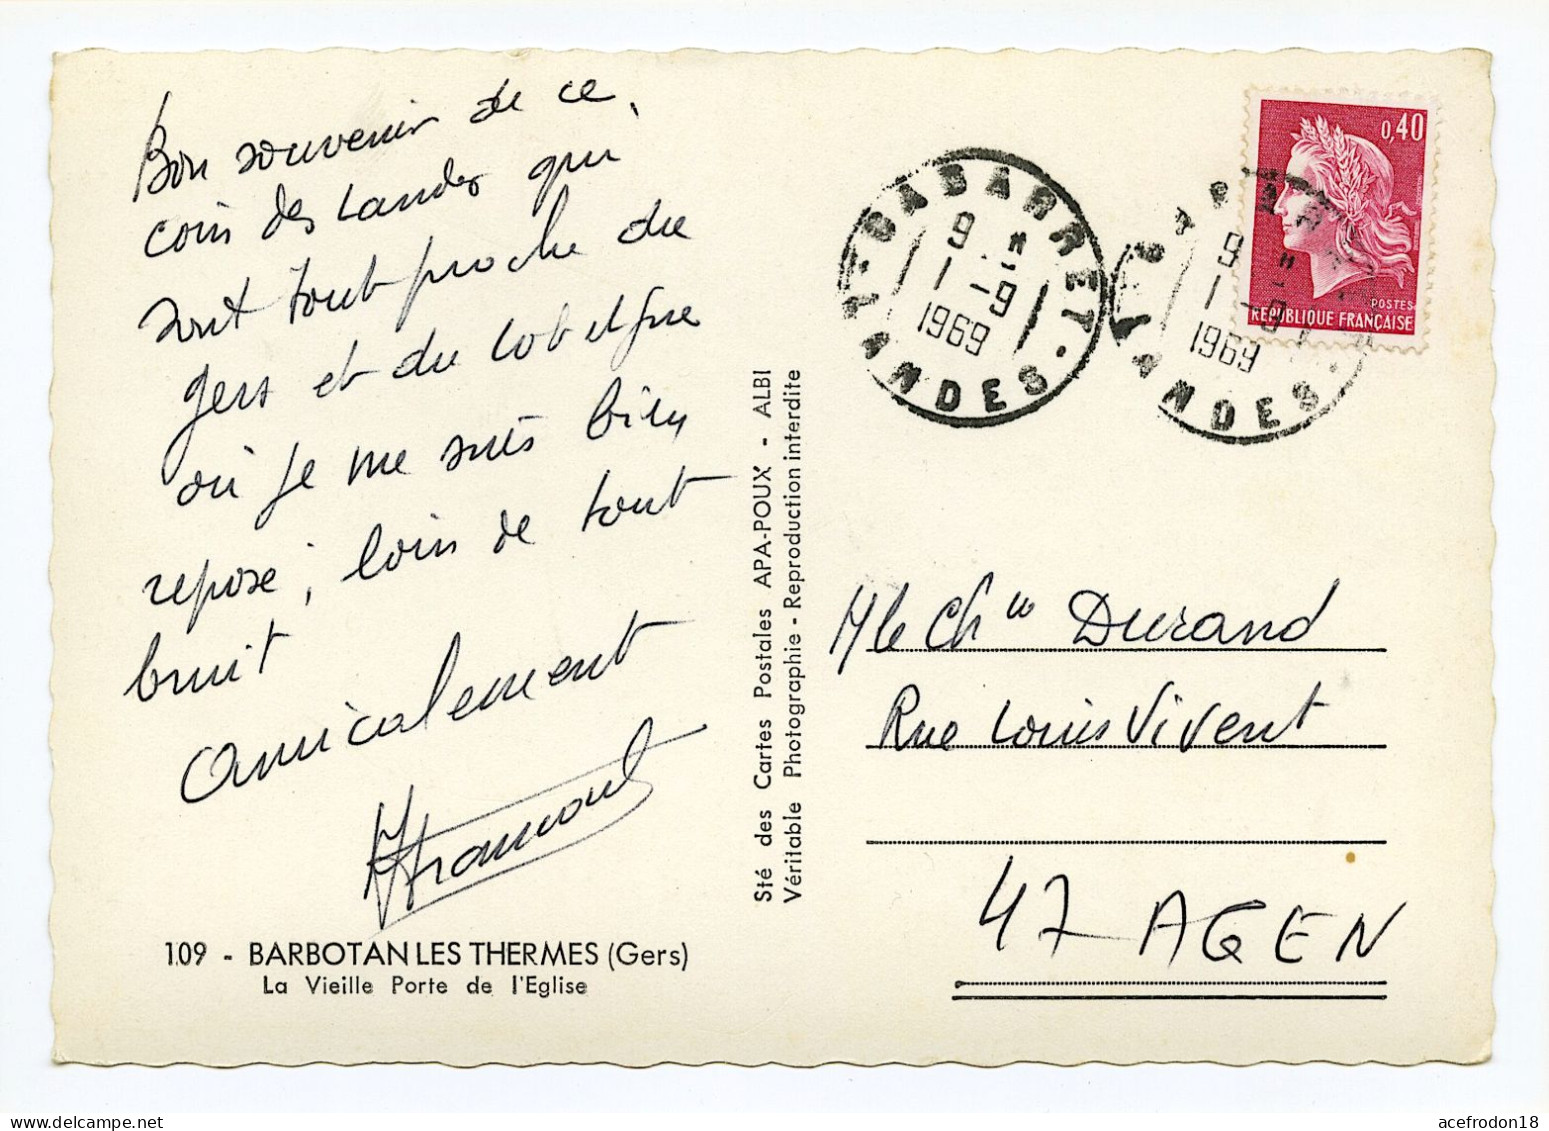 Bon souvenir de ce
coin des Landes qui
sont tout proche du
gers et du Lot et gne
où je me suis bien
reposé, loin de tout
bruit
Amicalement
109 - BARBOTAN LES THERMES (Gers)
La Vieille Porte de l'Eglise
Sté des Cartes Postales APA-POUX - ALBI
Véritable Photographie - Reproduction interdite
CABARRET
9 H
1 - 9
1969
LANDES
9 H
1 - 9
1969
LANDES
0,40
POSTES
REPUBLIQUE FRANÇAISE
Mle Ch Durand
Rue Louis Vivent
47 AGEN
acefrodon18